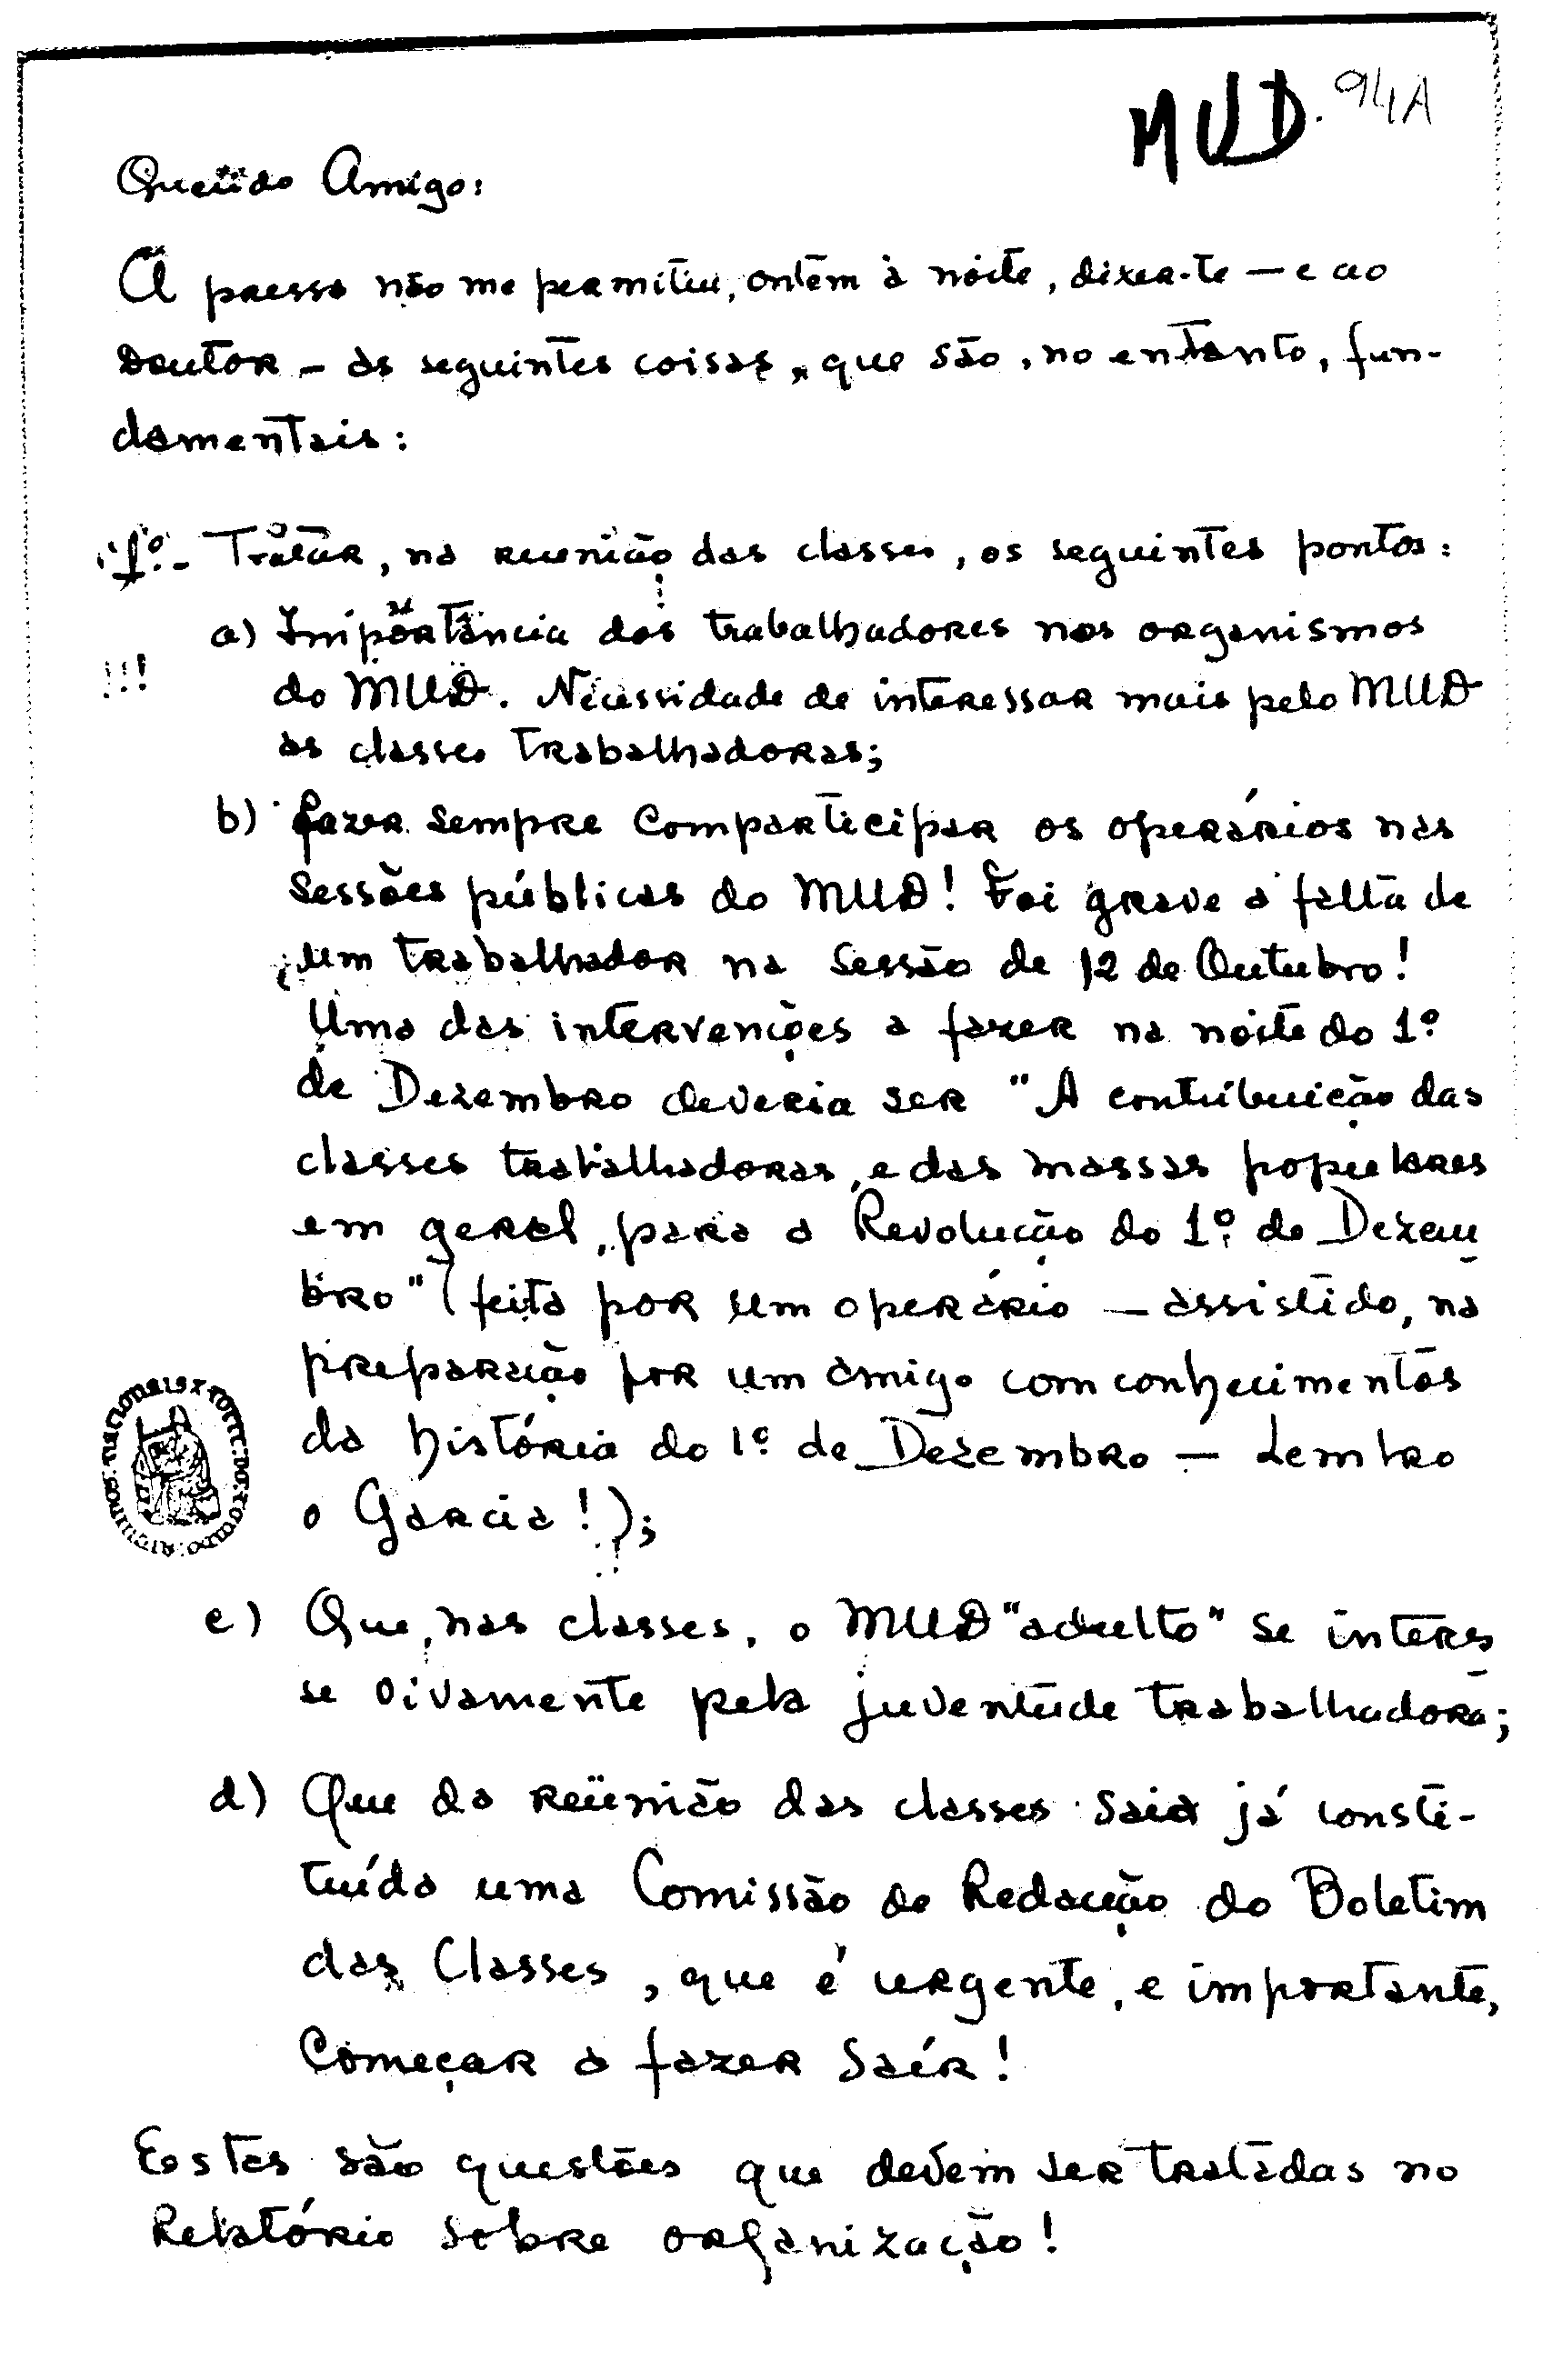 MUD. 94A
Querido Amigo:
A pressa não me permitiu, ontem à noite, dizer-te — e ao
Doutor — as seguintes coisas, que são, no entanto, fun-
damentais:
1º - Tratar, na reunião das classes, os seguintes pontos:
a) Importância dos trabalhadores nos organismos
!!! do MUD. Necessidade de interessar mais pelo MUD
as classes trabalhadoras;
b) fazer sempre comparticipar os operários nas
sessões públicas do MUD! Foi grave a falta de
um trabalhador na sessão de 12 de Outubro!
Uma das intervenções a fazer na noite do 1º
de Dezembro deveria ser "A contribuição das
classes trabalhadoras, e das massas populares
em geral, para a Revolução do 1º de Dezem
bro" (feita por um operário — assistido, na
preparação por um amigo com conhecimentos
da história do 1º de Dezembro — Lembro
o Garcia!);
c) Que, nas classes, o MUD "adulto" se interes
se vivamente pela juventude trabalhadora;
d) Que da reünião das classes saia já consti-
tuída uma Comissão de Redacção do Boletim
das Classes, que é urgente, e importante,
começar a fazer saír!
Estas são questões que devem ser tratadas no
Relatório sobre organização!
ARQUIVOS. NACIONAIS X TORRE. DO X TOMBO.